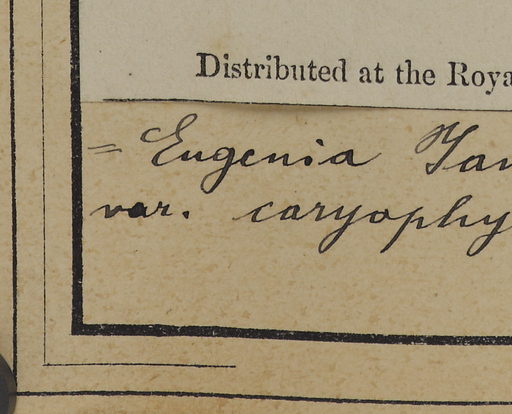 Distributed at the Roya
= Eugenia Jam
var. caryophy